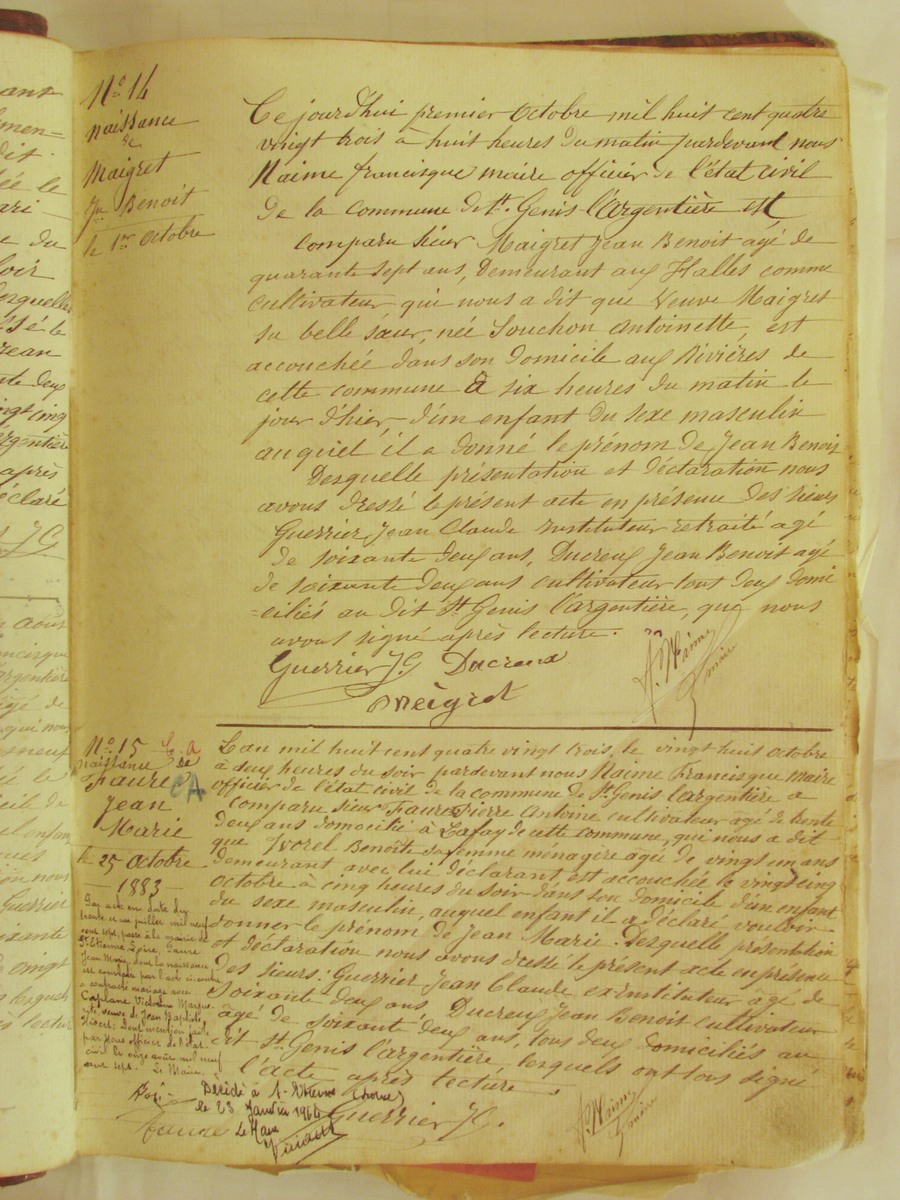 N° 14
naissance
de
Maigret
Jn Benoit
le 1er Octobre
Ce jourd'hui premier Octobre mil huit cent quatre
vingt trois à huit heures du matin pardevant nous
Naime francisque maire officier de l'état civil
de la commune de St. Genis l'argentière est
comparu sieur Maigret Jean Benoit agé de
quarante sept ans, demeurant aux Halles comme
cultivateur, qui nous a dit que Veuve Maigret
sa belle sœur, née Souchon Antoinette, est
accouchée dans son domicile aux Rivières de
cette commune à six heures du matin le
jour d'hier d'un enfant du sexe masculin
auquel il a donné le prénom de Jean Benoit
Desquelle présentation et déclaration nous
avons dressé le présent acte en présence des sieurs
Guerrier Jean Claude instituteur retraité agé
de soixante deux ans, Ducreux Jean Benoit agé
de soixante deux ans cultivateur tout deux domi
=ciliés au dit St Genis l'argentière, que nous
avons signé après lecture.
Guerrier J.C Ducreux
Meigret
F. Naime
maire
N° 15
naissance de
Faure
Jean
Marie
le 25 Octobre
1883
CA
L'an mil huit cent quatre vingt trois, le vingt huit octobre
à deux heures du soir pardevant nous Naime Francisque maire
officier de l'état civil de la commune de St Genis l'argentière a
comparu sieur Faure Pierre Antoine cultivateur agé de trente
deux ans domicilié à Lafay de cette commune, qui nous a dit
que Benoîte sa femme ménagère agée de vingt un ans
demeurant avec lui déclarant est accouchée le vingt cinq
octobre à cinq heures du soir dans son domicile d'un enfant
du sexe masculin, auquel enfant il a déclaré vouloir
donner le prénom de Jean Marie. Desquelle présentation
et déclaration nous avons dressé le présent acte en présence
des sieurs: Guerrier Jean Claude ex instituteur agé de
soixante deux ans Ducreux Jean Benoit cultivateur
agé de soixante deux ans, tous deux domiciliés au
dit St Genis l'argentière, lesquels ont tous signé
l'acte après lecture.
Par acte en date du
trente et un juillet mil neuf
cent sept, passé à la mairie de
St Etienne Loire, Faure
Jean Marie dont la naissance
est constatée par l'acte ci-contre
a contracté mariage avec
Caplane Victorine
veuve de Jean Baptiste
Dont mention faite
par Nous officier de l'état
civil le onze août mil neuf
cent sept. Le Maire,
Décédé à St-Etienne (Loire)
le 23 Janvier 1964
Le Maire
Faure
Guerrier J.C.
F. Naime
maire